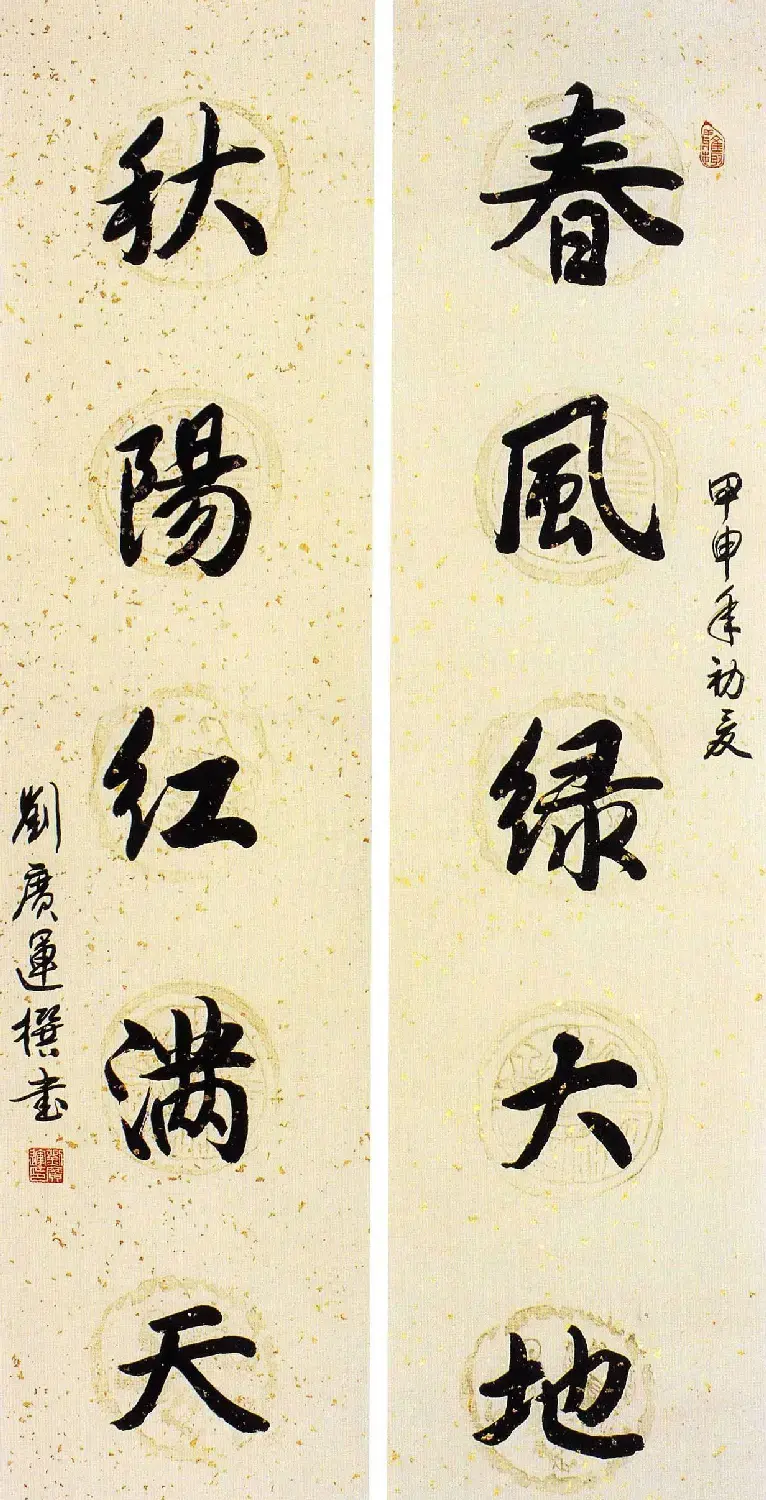 春風绿大地
甲申年初夏
秋陽红满天
劉廣運撰书